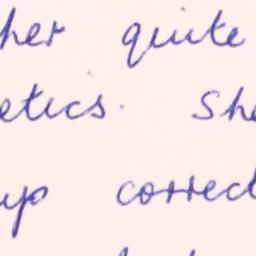 her quite
etics. She
up correct